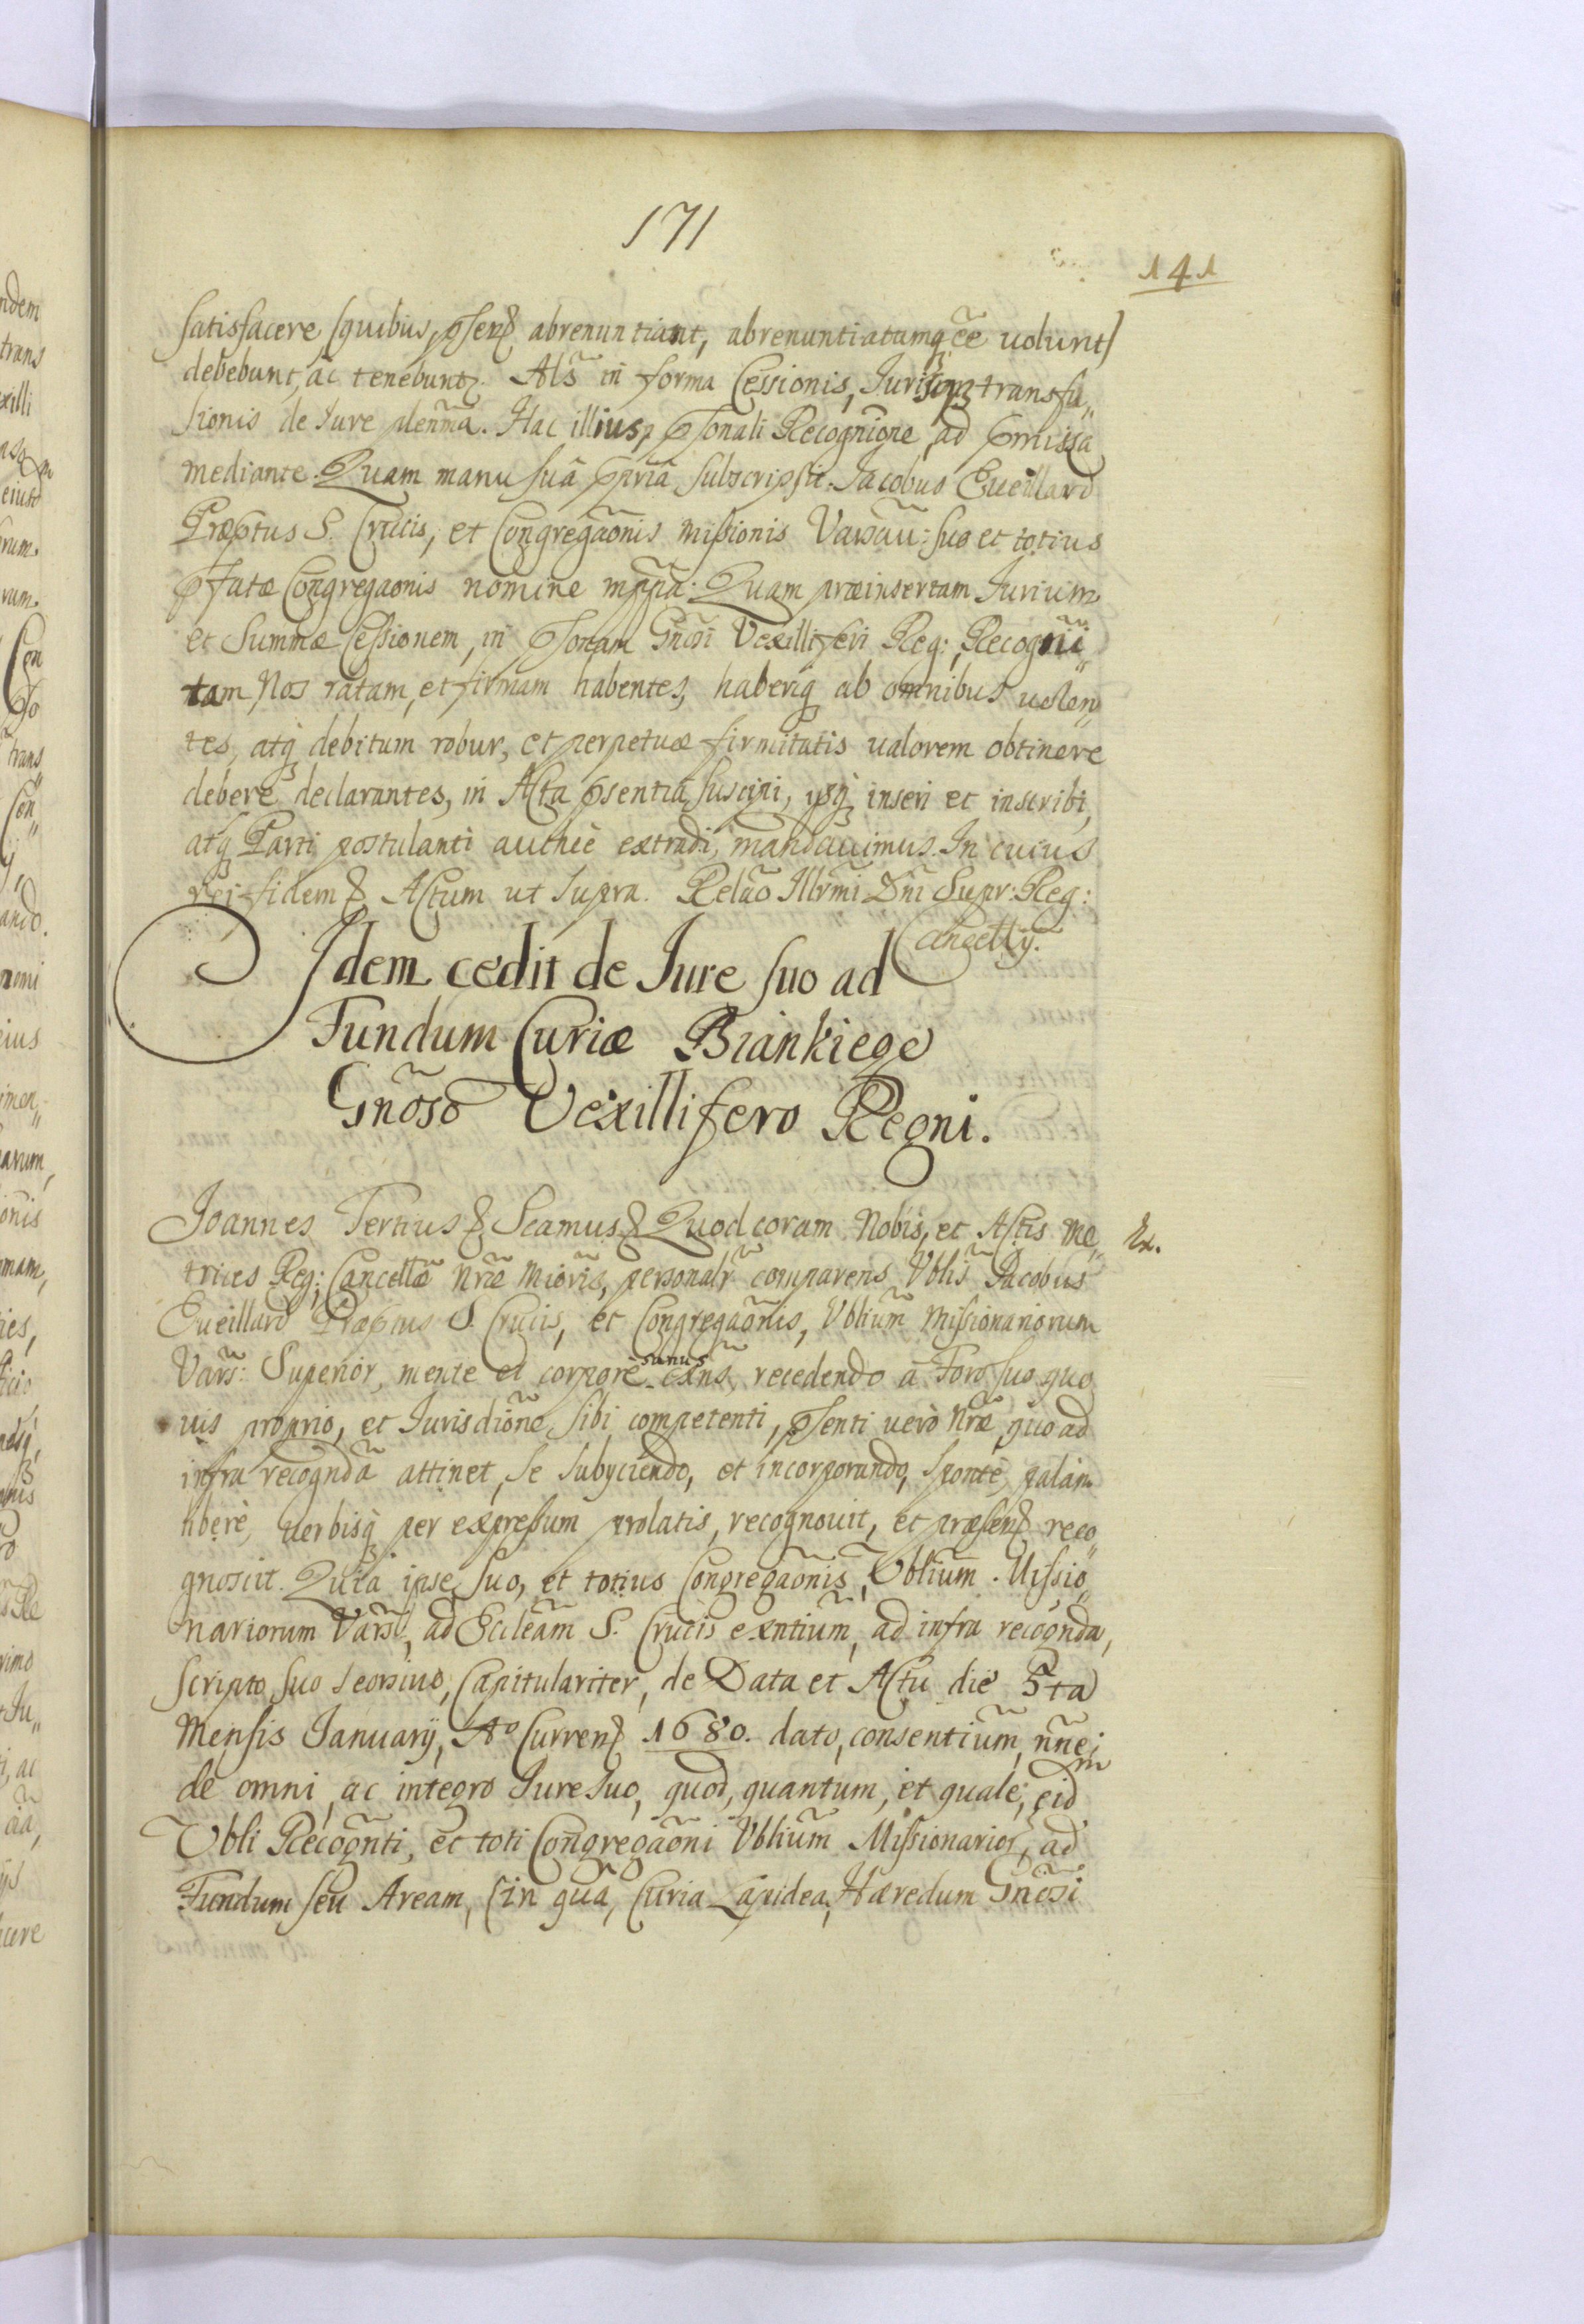 171
141
satisfacere (quibus, pñserz abrenuntiant, abrenuntiatumq̃ ẽe volunt)
debebunt, ac tenebuntr. Alš in forma Cessionis, Jurisq̃ transfu„
sionis de Jure plenmã. Hac illius, psonali Recognñione, ad pmissa
mediante. Quam manu suâ ppriâ subscripsit. Jacobus Eveillard
Præptus S. Crucis, et Congregãonis Missionis Varsau̅: suo et totius
pfatæ Congregãonis nomine mppã. Quam præinsertam Jurium
et Summæ Cessionem, in psonam Gñosi Vexilliferi Reg: Recogñi„
tam Nos ratam, et firmam habentes, haberiq̃ ab omnibus volen„
tes, atq̃ debitum robur, et perpetuæ firmitatis valorem obtinere
debere declarantes, in Acta psentia suscipi, ysq̃ inseri et inscribi,
atq̃ Parti postulanti authẽ extradi, mandavimus. In cuius
rei fidem & Actum ut supra. Relão Illrmi Dñi Supr: Reg:
Cancellÿ.
Idem cedit de Jure suo ad
Fundum Curiæ Biankiege
Gñoso Vexillifero Regni.
Joannes Tertius & Scamus & Quod coram Nobis, et Actis Me„
Ex.
trices Reg: Cancellæ Nræ Mioris, personalr̃ comparens Vblis Jacobus
Eveillard Præptus S. Crucis, et Congregãonis, Vblium Missionariorum
Vars: Superior, mente et corpore sanus exñs, recedendo à Foro suo quo„
vis proprio, et Jurisdiõne sibi competenti, psenti verò Nræ, quo ad
infra recogndã attinet, se subyciendo, et incorporando, sponte, palàm
liberè, verbisq̃ per expressum prolatis, recognovit, et præsenz reco„
gnoscit. Quia ipse suo, et totius Congregãonis, Vblium Missio„
nariorum Vars:, ad Eccleãm S. Crucis exñtium, ad infra recognda,
scripto suo seorsivo, Capitulariter, de Data et Actu die 5ta
Mensis Januarÿ, Aº Currenz 1680. dato, consentium, nñe,
de omni, ac integro Jure suo, quod, quantum, et quale, eidm
Vbli Recognti, et toti Congregãoni Vblium Missionarioz, ad
Fundum seu Aream, (in quâ, Curia Lapidea, Hæredum Gñosi